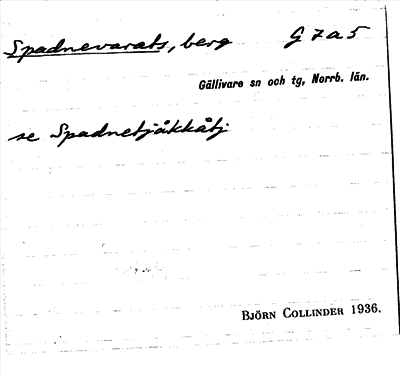 Spadnevarats, berg G 7 a 5
Gällivare sn och tg, Norrb. län.
se Spadnetjåkkåtj
BJÖRN COLLINDER 1936.